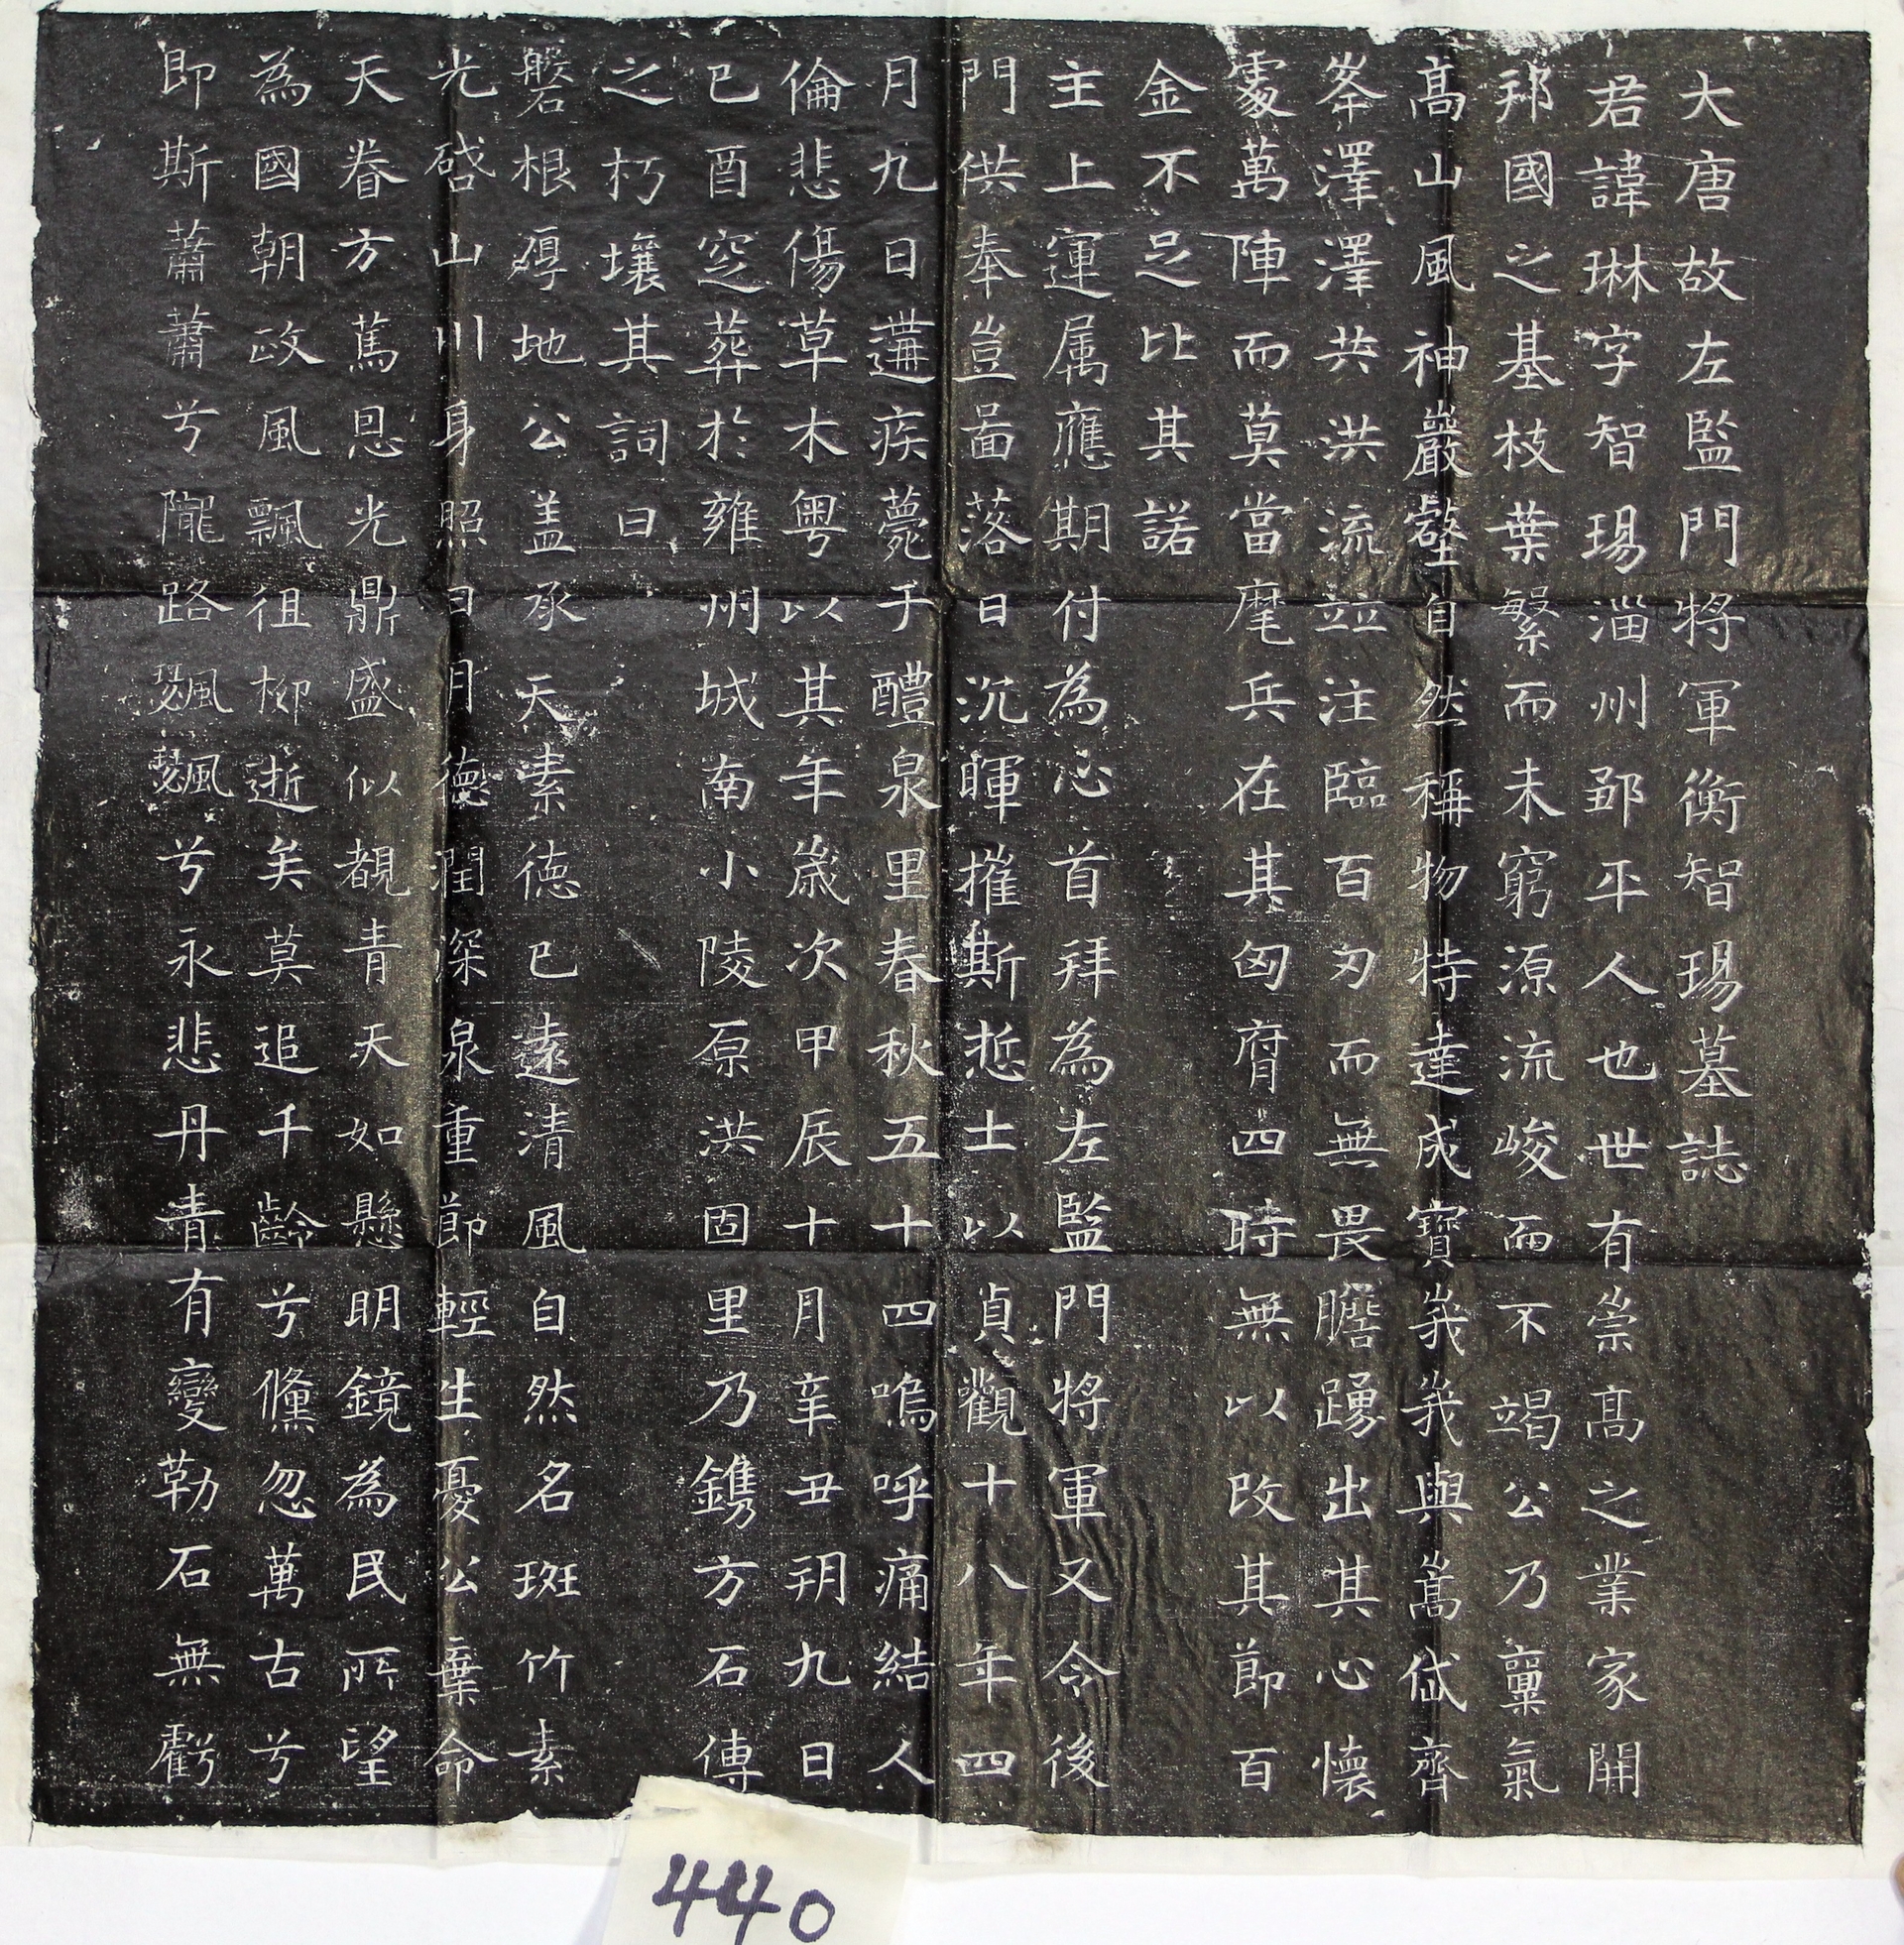 大唐故左監門將軍衡智玚墓誌
君諱琳字智玚淄州鄒平人也世有崇髙之業家開
邦國之基枝葉繁而未窮源流峻而不竭公乃稟氣
髙山風神巖壑自然稱物特達成寶峩峩與嵩岱齊
峯澤澤共洪流並注臨百刃而無畏膽踴出其心懷
寠萬陣而莫當麾兵在其匈府四時無以改其節百
金不足比其諾
主上運属應期付為心首拜為左監門將軍又令後
門供奉豈啚落日沉暉摧斯悊士以貞觀十八年四
月九日遘疾薨于醴泉里春秋五十四嗚呼痛結人
倫悲傷草木粤以其年歲次甲辰十月辛丑玥九日
已酉窆葬於雍州城南小陵原洪固里乃鐫方石傳
之朽壤其詞曰
磐根厚地公盖承天素德已遠清風自然名斑竹素
光啓山川身照日月德潤深泉重節輕生憂公棄命
天眷方蔿恩光鼎盛似覩青天如懸明鏡為民所望
為國朝政風飄徂柳逝矣莫追千齡兮儵忽萬古兮
即斯蕭蕭兮隴路飂飂兮永悲丹青有變勒石無虧
440